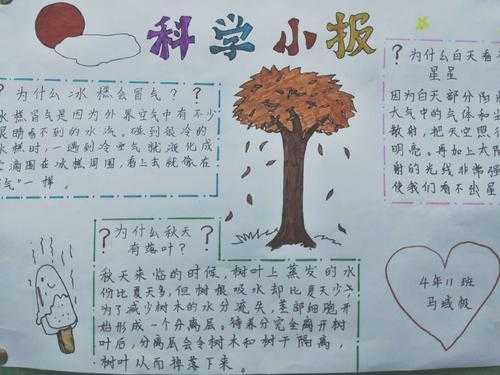 科学小报
？为什么冰糕会冒气？？
冰糕冒气是因为外界空气中有不少
眼睛看不到的水汽。碰到很冷的
冰糕时,一遇到冷空气就液化成
滴围在冰糕周围,看上去就像在
气"一样。
？为什么白天看不
星星
因为白天部分阳
大气中的气体和
散射,把天空照
明亮。再加上太阳
射的光线非常强
使我们看不出星
？为什么秋天？
有落叶？
秋天来临的时候,树叶上蒸发的水
份比夏天多,但树根吸水却比夏天少
为了减少树木的水分流失,茎部细胞开
始形成一个分离层。待养分完全离开树
叶后,分离层会令树木和树干隔离,
树叶从而掉落下来。
4年11班
马